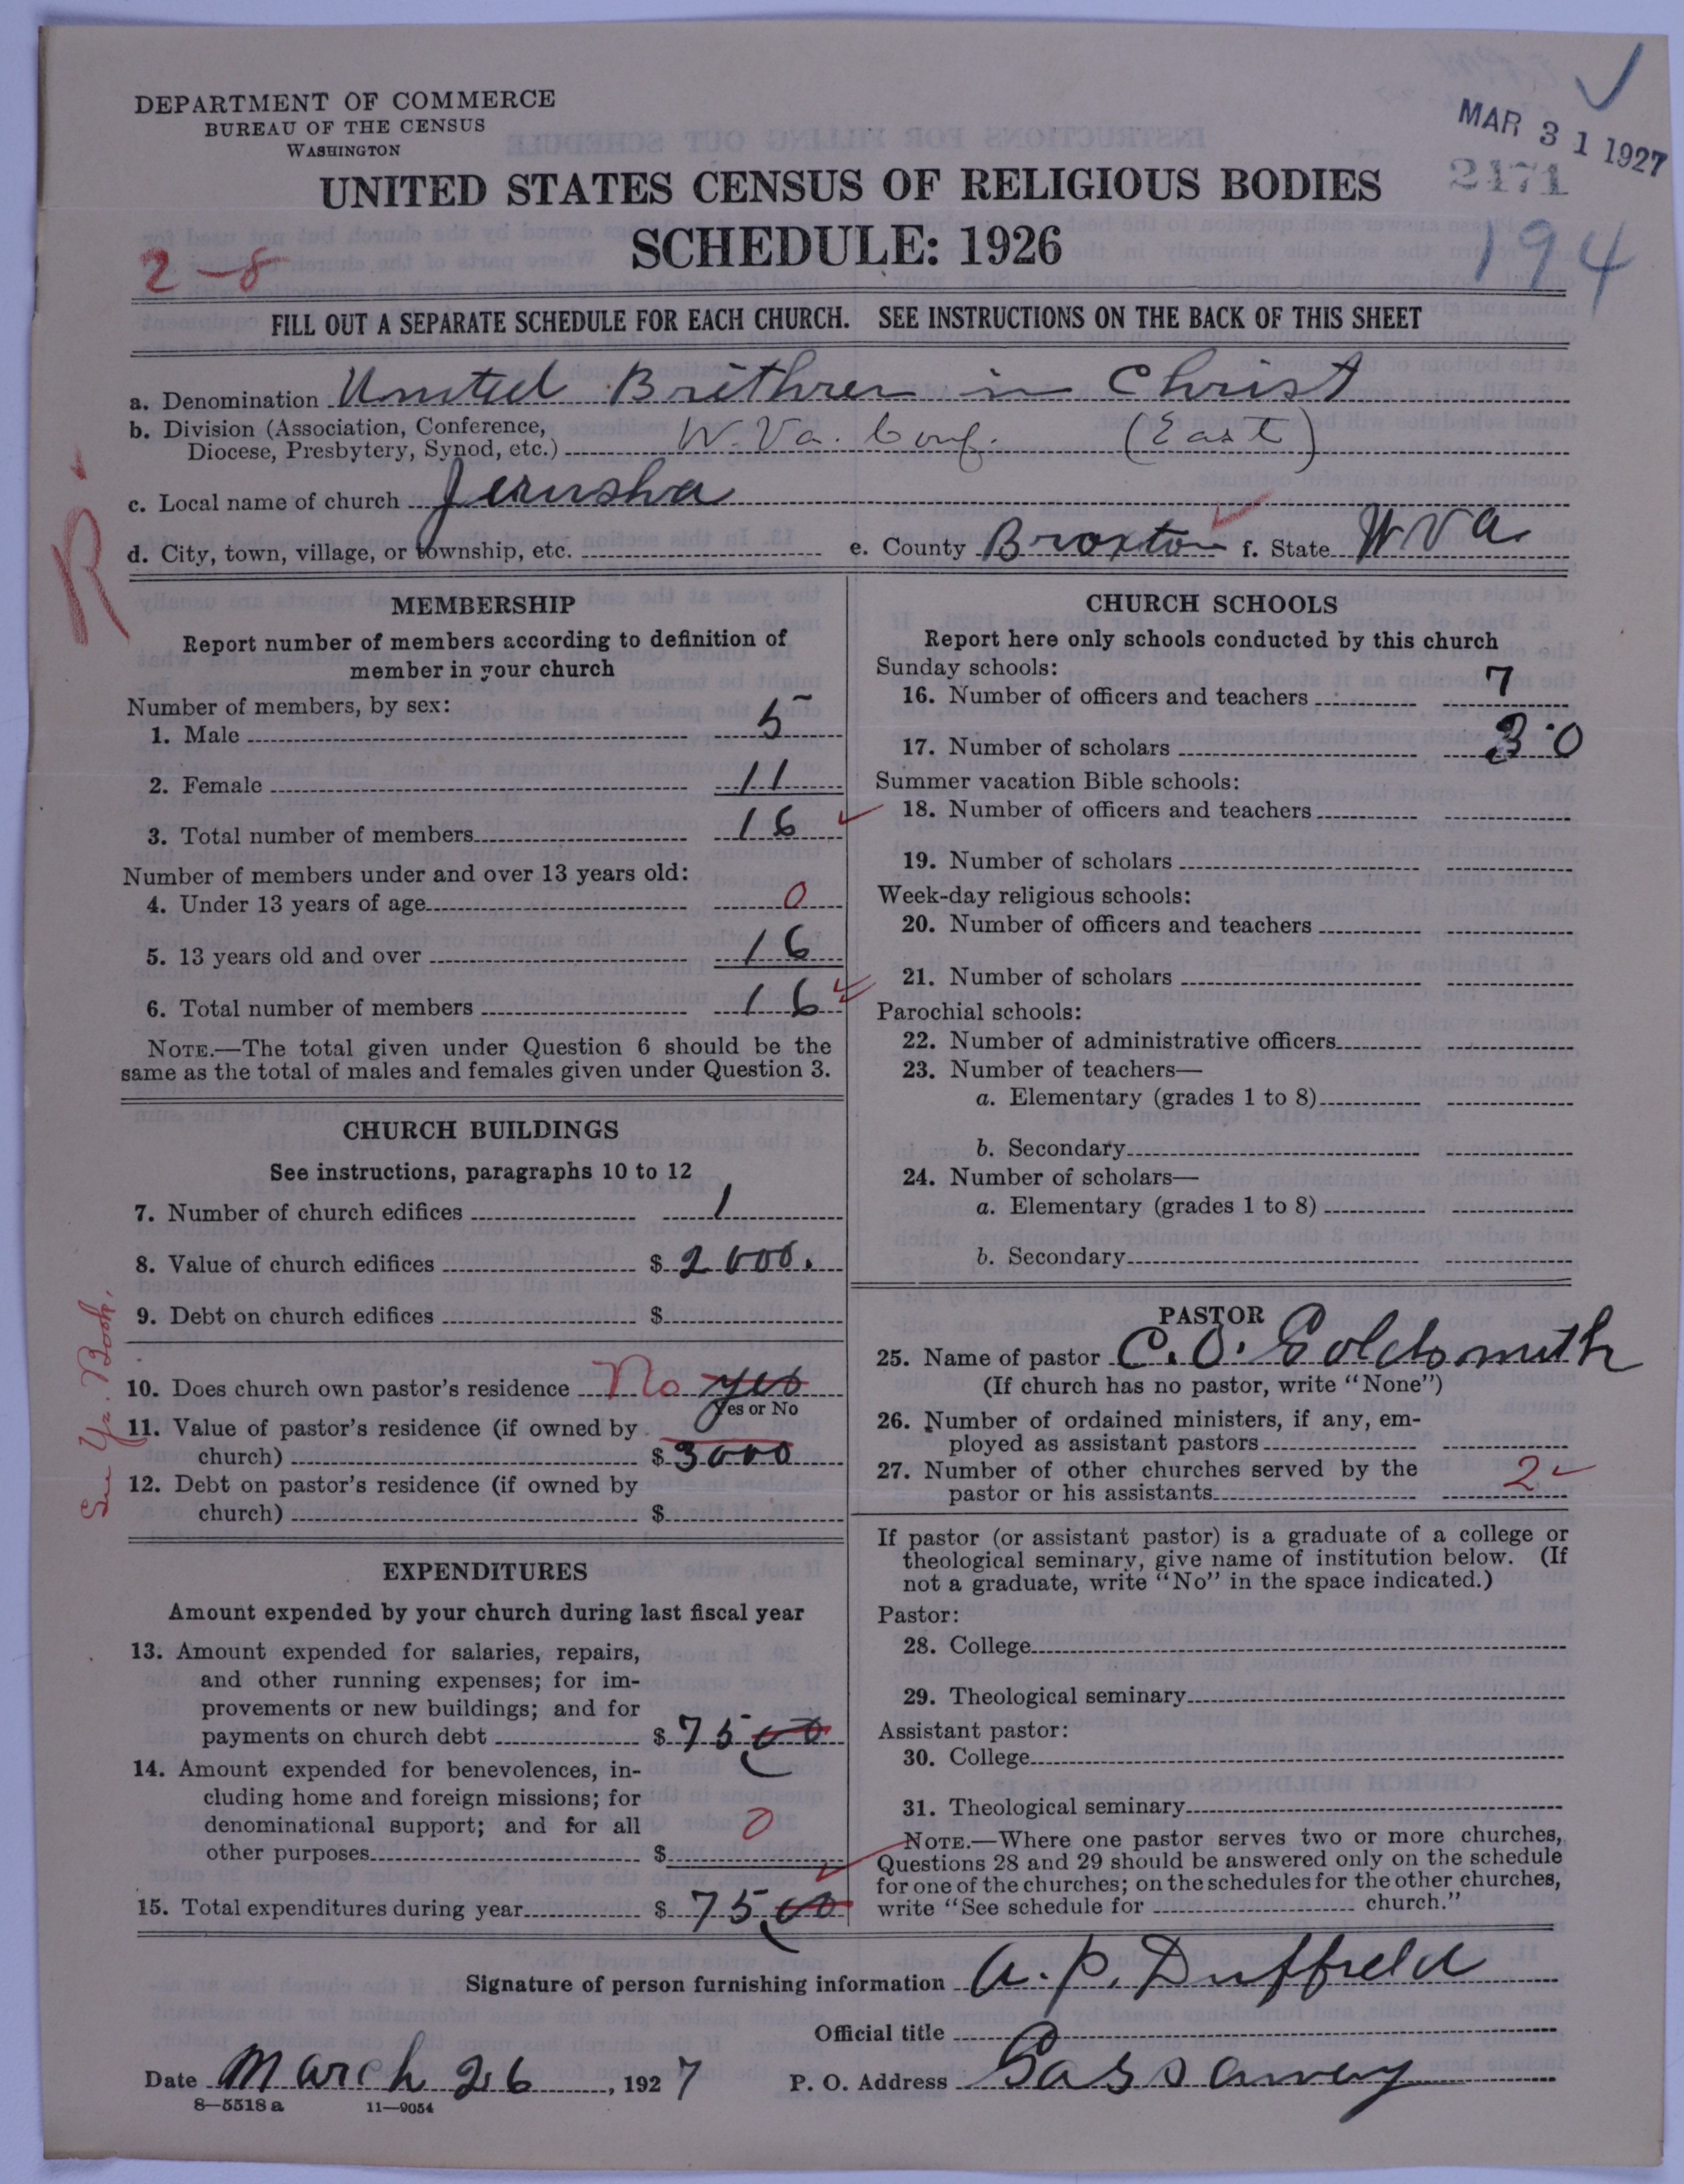 DEPARTMENT OF COMMERCE
BUREAU OF THE CENSUS
WASHINGTON
MAR 31 1927
2171
UNITED STATES CENSUS OF RELIGIOUS BODIES
SCHEDULE: 1926
2-8
194
FILL OUT A SEPARATE SCHEDULE FOR EACH CHURCH. SEE INSTRUCTIONS ON THE BACK OF THIS SHEET
a. Denomination United Brethren in Christ
b. Division (Association, Conference,
Diocese, Presbytery, Synod, etc.) W. Va. Conf. (East)
c. Local name of church Jerusha
d. City, town, village, or township, etc. e. County Broxton f. State W Va.
R
MEMBERSHIP
Report number of members according to definition of
member in your church
Number of members, by sex:
1. Male 5
2. Female 11
3. Total number of members 16
Number of members under and over 13 years old:
4. Under 13 years of age 0
5. 13 years old and over 16
6. Total number of members 16
NOTE.—The total given under Question 6 should be the
same as the total of males and females given under Question 3.
CHURCH BUILDINGS
See instructions, paragraphs 10 to 12
7. Number of church edifices 1
8. Value of church edifices $ 2000.
9. Debt on church edifices $
See Yr. Book.
10. Does church own pastor's residence No yes
Yes or No
11. Value of pastor's residence (if owned by
church) $ 3000
12. Debt on pastor's residence (if owned by
church) $
EXPENDITURES
Amount expended by your church during last fiscal year
13. Amount expended for salaries, repairs,
and other running expenses; for im-
provements or new buildings; and for
payments on church debt $ 75 00
14. Amount expended for benevolences, in-
cluding home and foreign missions; for
denominational support; and for all
other purposes $ 0
15. Total expenditures during year $ 75,00
CHURCH SCHOOLS
Report here only schools conducted by this church
Sunday schools:
16. Number of officers and teachers 7
17. Number of scholars 30
Summer vacation Bible schools:
18. Number of officers and teachers
19. Number of scholars
Week-day religious schools:
20. Number of officers and teachers
21. Number of scholars
Parochial schools:
22. Number of administrative officers
23. Number of teachers—
a. Elementary (grades 1 to 8)
b. Secondary
24. Number of scholars—
a. Elementary (grades 1 to 8)
b. Secondary
PASTOR
25. Name of pastor C. O. Goldsmith
(If church has no pastor, write "None")
26. Number of ordained ministers, if any, em-
ployed as assistant pastors
27. Number of other churches served by the
pastor or his assistants 2
If pastor (or assistant pastor) is a graduate of a college or
theological seminary, give name of institution below. (If
not a graduate, write "No" in the space indicated.)
Pastor:
28. College
29. Theological seminary
Assistant pastor:
30. College
31. Theological seminary
NOTE.—Where one pastor serves two or more churches,
Questions 28 and 29 should be answered only on the schedule
for one of the churches; on the schedules for the other churches,
write "See schedule for church."
Signature of person furnishing information A. P. Duffield
Official title
Date March 26, 1927 P. O. Address Gassaway
8—5518 a 11—9054